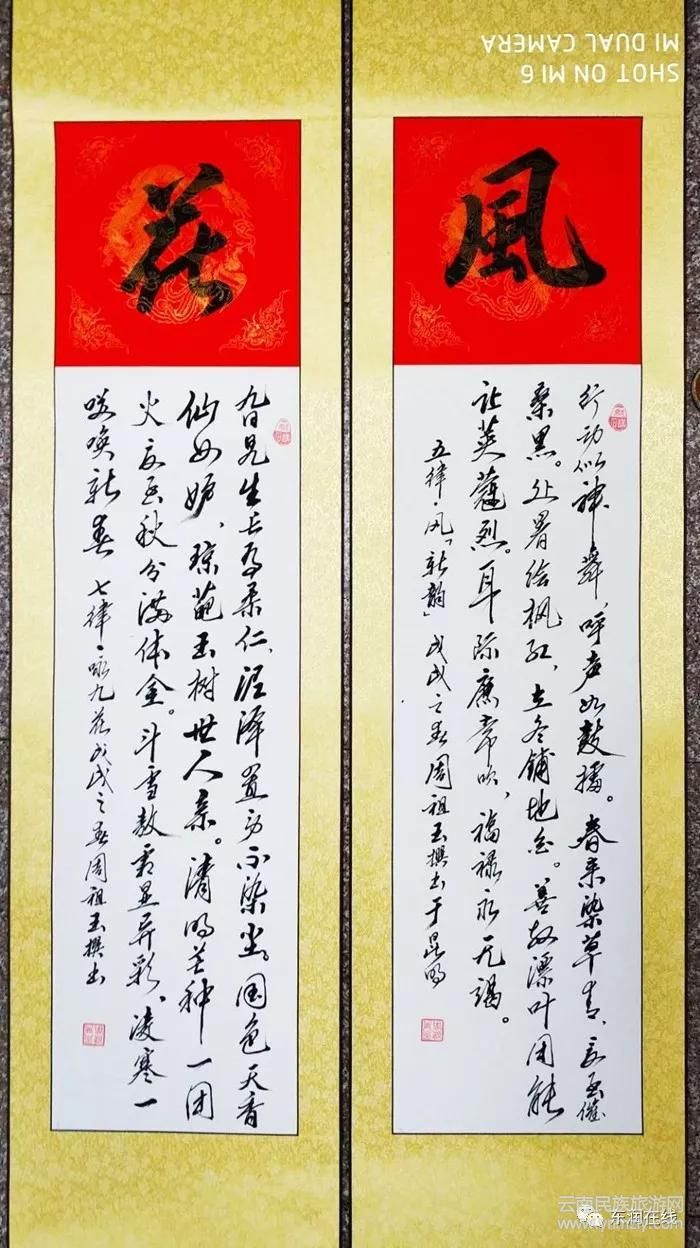 SHOT ON MI 6
MI DUAL CAMERA
風
行动似神舞,呼声如鼓擂。春来染草青、夏至催
桑黑。处署绘枫红,立冬铺地白。善教漂叶团能
让英蔻烈。耳际应常吹,福禄永无竭。
五律·风「新韵」戊戌之春周祖玉撰书于昆明
花
生长为柔仁、沼泽置身不染尘。国色天香
仙女妒、琼葩玉树世人亲。清明芒种一团
火夏至秋分满体金。斗雪敖霜显异彩、凌寒一
笑唤新春 七律·咏九花戊戌之春周祖玉撰书
云南民族旅游网
东润在线